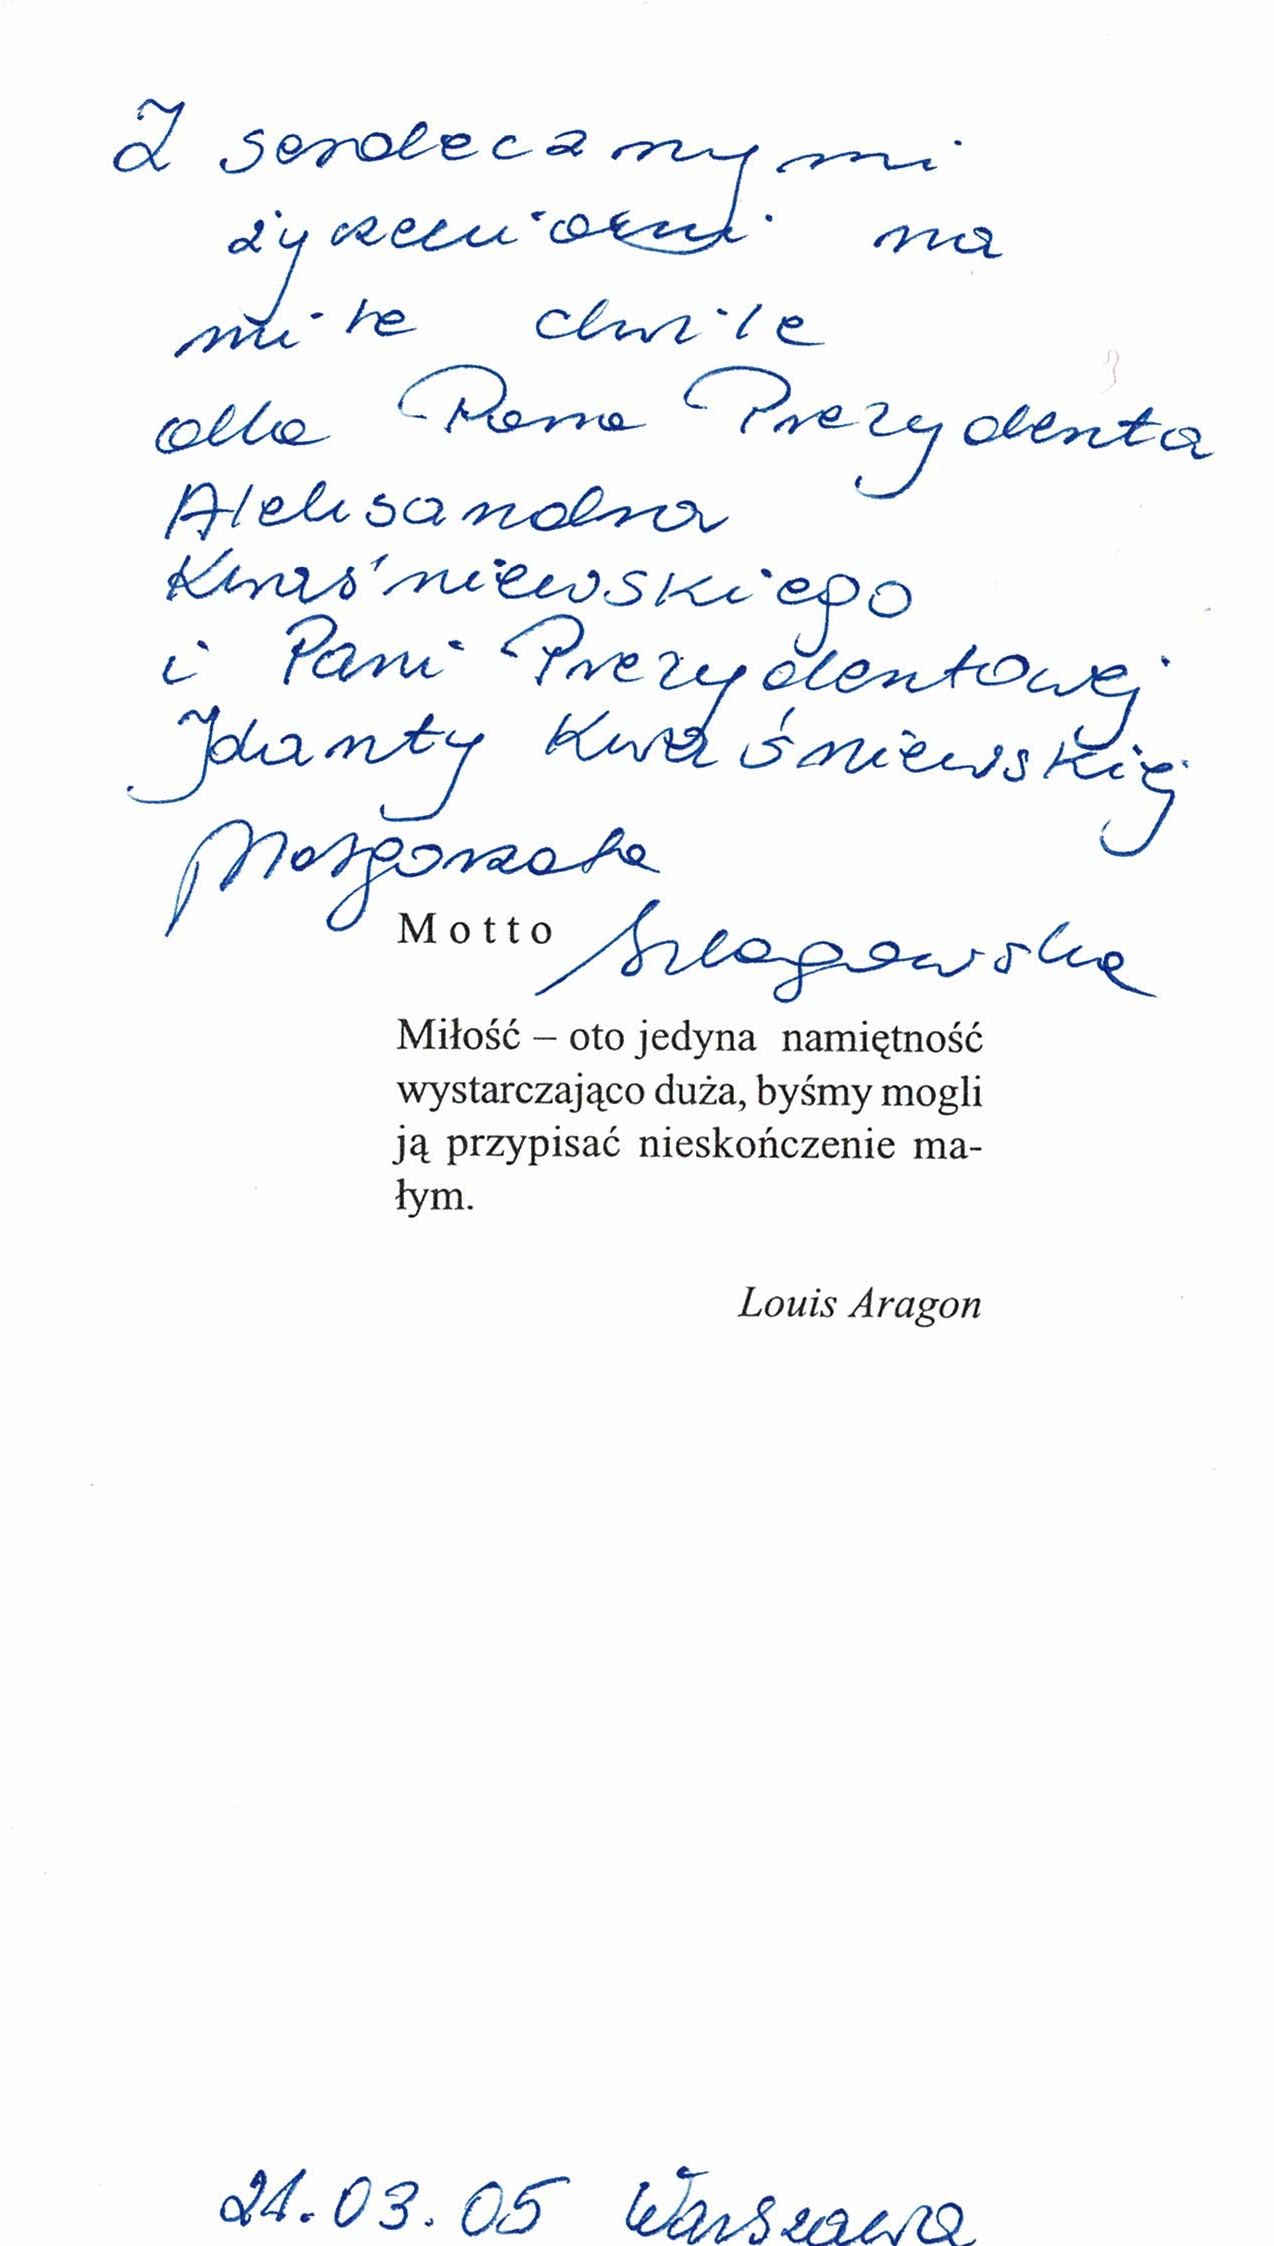 Z serdecznymi
życzeniami na
miłe chwile
dla Pana Prezydenta
Aleksandra
Kwaśniewskiego
i Pani Prezydentowej
Jolanty Kwaśniewskiej
Małgorzata
Motto Szlagowska
Miłość – oto jedyna namiętność
wystarczająco duża, byśmy mogli
ją przypisać nieskończenie ma-
łym.
Louis Aragon
21.03.05 Warszawa